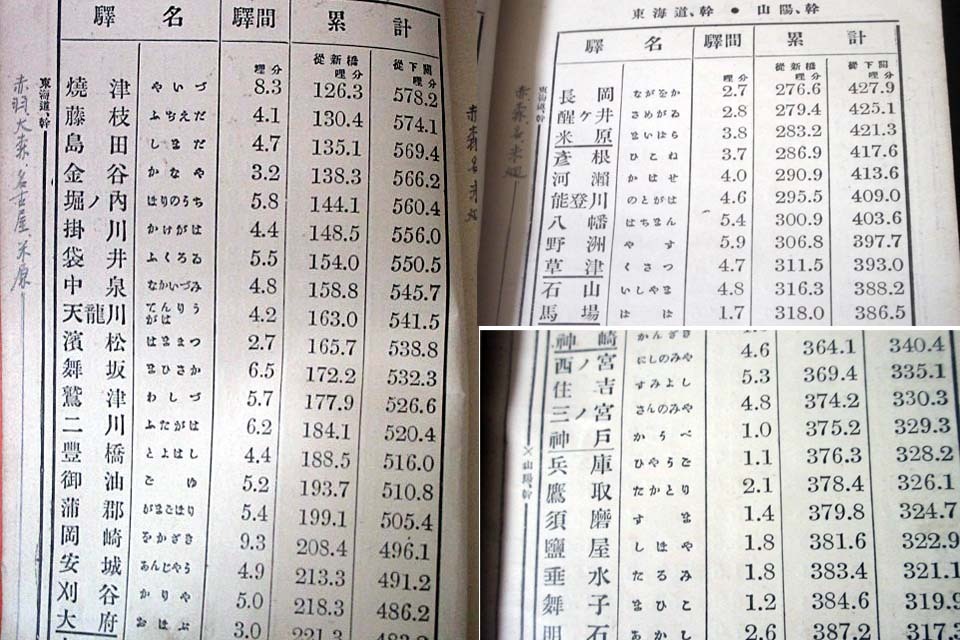 驛名 驛間 累計
哩分 從新橋哩分 從下關哩分
東海道、幹
燒津 やいづ 8.3 126.3 578.2
藤枝 ふぢえだ 4.1 130.4 574.1
島田 しまだ 4.7 135.1 569.4
金谷 かなや 3.2 138.3 566.2
堀ノ內 ほりのうち 5.8 144.1 560.4
掛川 かけがは 4.4 148.5 556.0
袋井 ふくろゐ 5.5 154.0 550.5
中泉 なかいづみ 4.8 158.8 545.7
天龍川 てんりうがは 4.2 163.0 541.5
濱松 はままつ 2.7 165.7 538.8
舞坂 まひさか 6.5 172.2 532.3
鷲津 わしづ 5.7 177.9 526.6
二川 ふたがは 6.2 184.1 520.4
豐橋 とよはし 4.4 188.5 516.0
御油 ごゆ 5.2 193.7 510.8
蒲郡 がまごほり 5.4 199.1 505.4
岡崎 をかざき 9.3 208.4 496.1
安城 あんじやう 4.9 213.3 491.2
刈谷 かりや 5.0 218.3 486.2
大府 おほぶ 3.0 221.3
赤羽 大森 名古屋 米原
東海道、幹 ● 山陽、幹
驛名 驛間 累計
哩分 從新橋哩分 從下關哩分
東海道、幹
長岡 ながをか 2.7 276.6 427.9
醒ヶ井 さめがゐ 2.8 279.4 425.1
米原 まいはら 3.8 283.2 421.3
彥根 ひこね 3.7 286.9 417.6
河瀨 かはせ 4.0 290.9 413.6
能登川 のとがは 4.6 295.5 409.0
八幡 はちまん 5.4 300.9 403.6
野洲 やす 5.9 306.8 397.7
草津 くさつ 4.7 311.5 393.0
石山 いしやま 4.8 316.3 388.2
馬場 ばば 1.7 318.0 386.5
神崎 かんざき 364.1 340.4
西ノ宮 にしのみや 4.6
住吉 すみよし 5.3 369.4 335.1
三ノ宮 さんのみや 4.8 374.2 330.3
神戶 かうべ 1.0 375.2 329.3
× 山陽、幹
兵庫 ひやうご 1.1 376.3 328.2
鷹取 たかとり 2.1 378.4 326.1
須磨 すま 1.4 379.8 324.7
鹽屋 しほや 1.8 381.6 322.9
垂水 たるみ 1.8 383.4 321.1
舞子 まひこ 1.2 384.6 319.9
明石 あかし 2.6 387.2 317.3